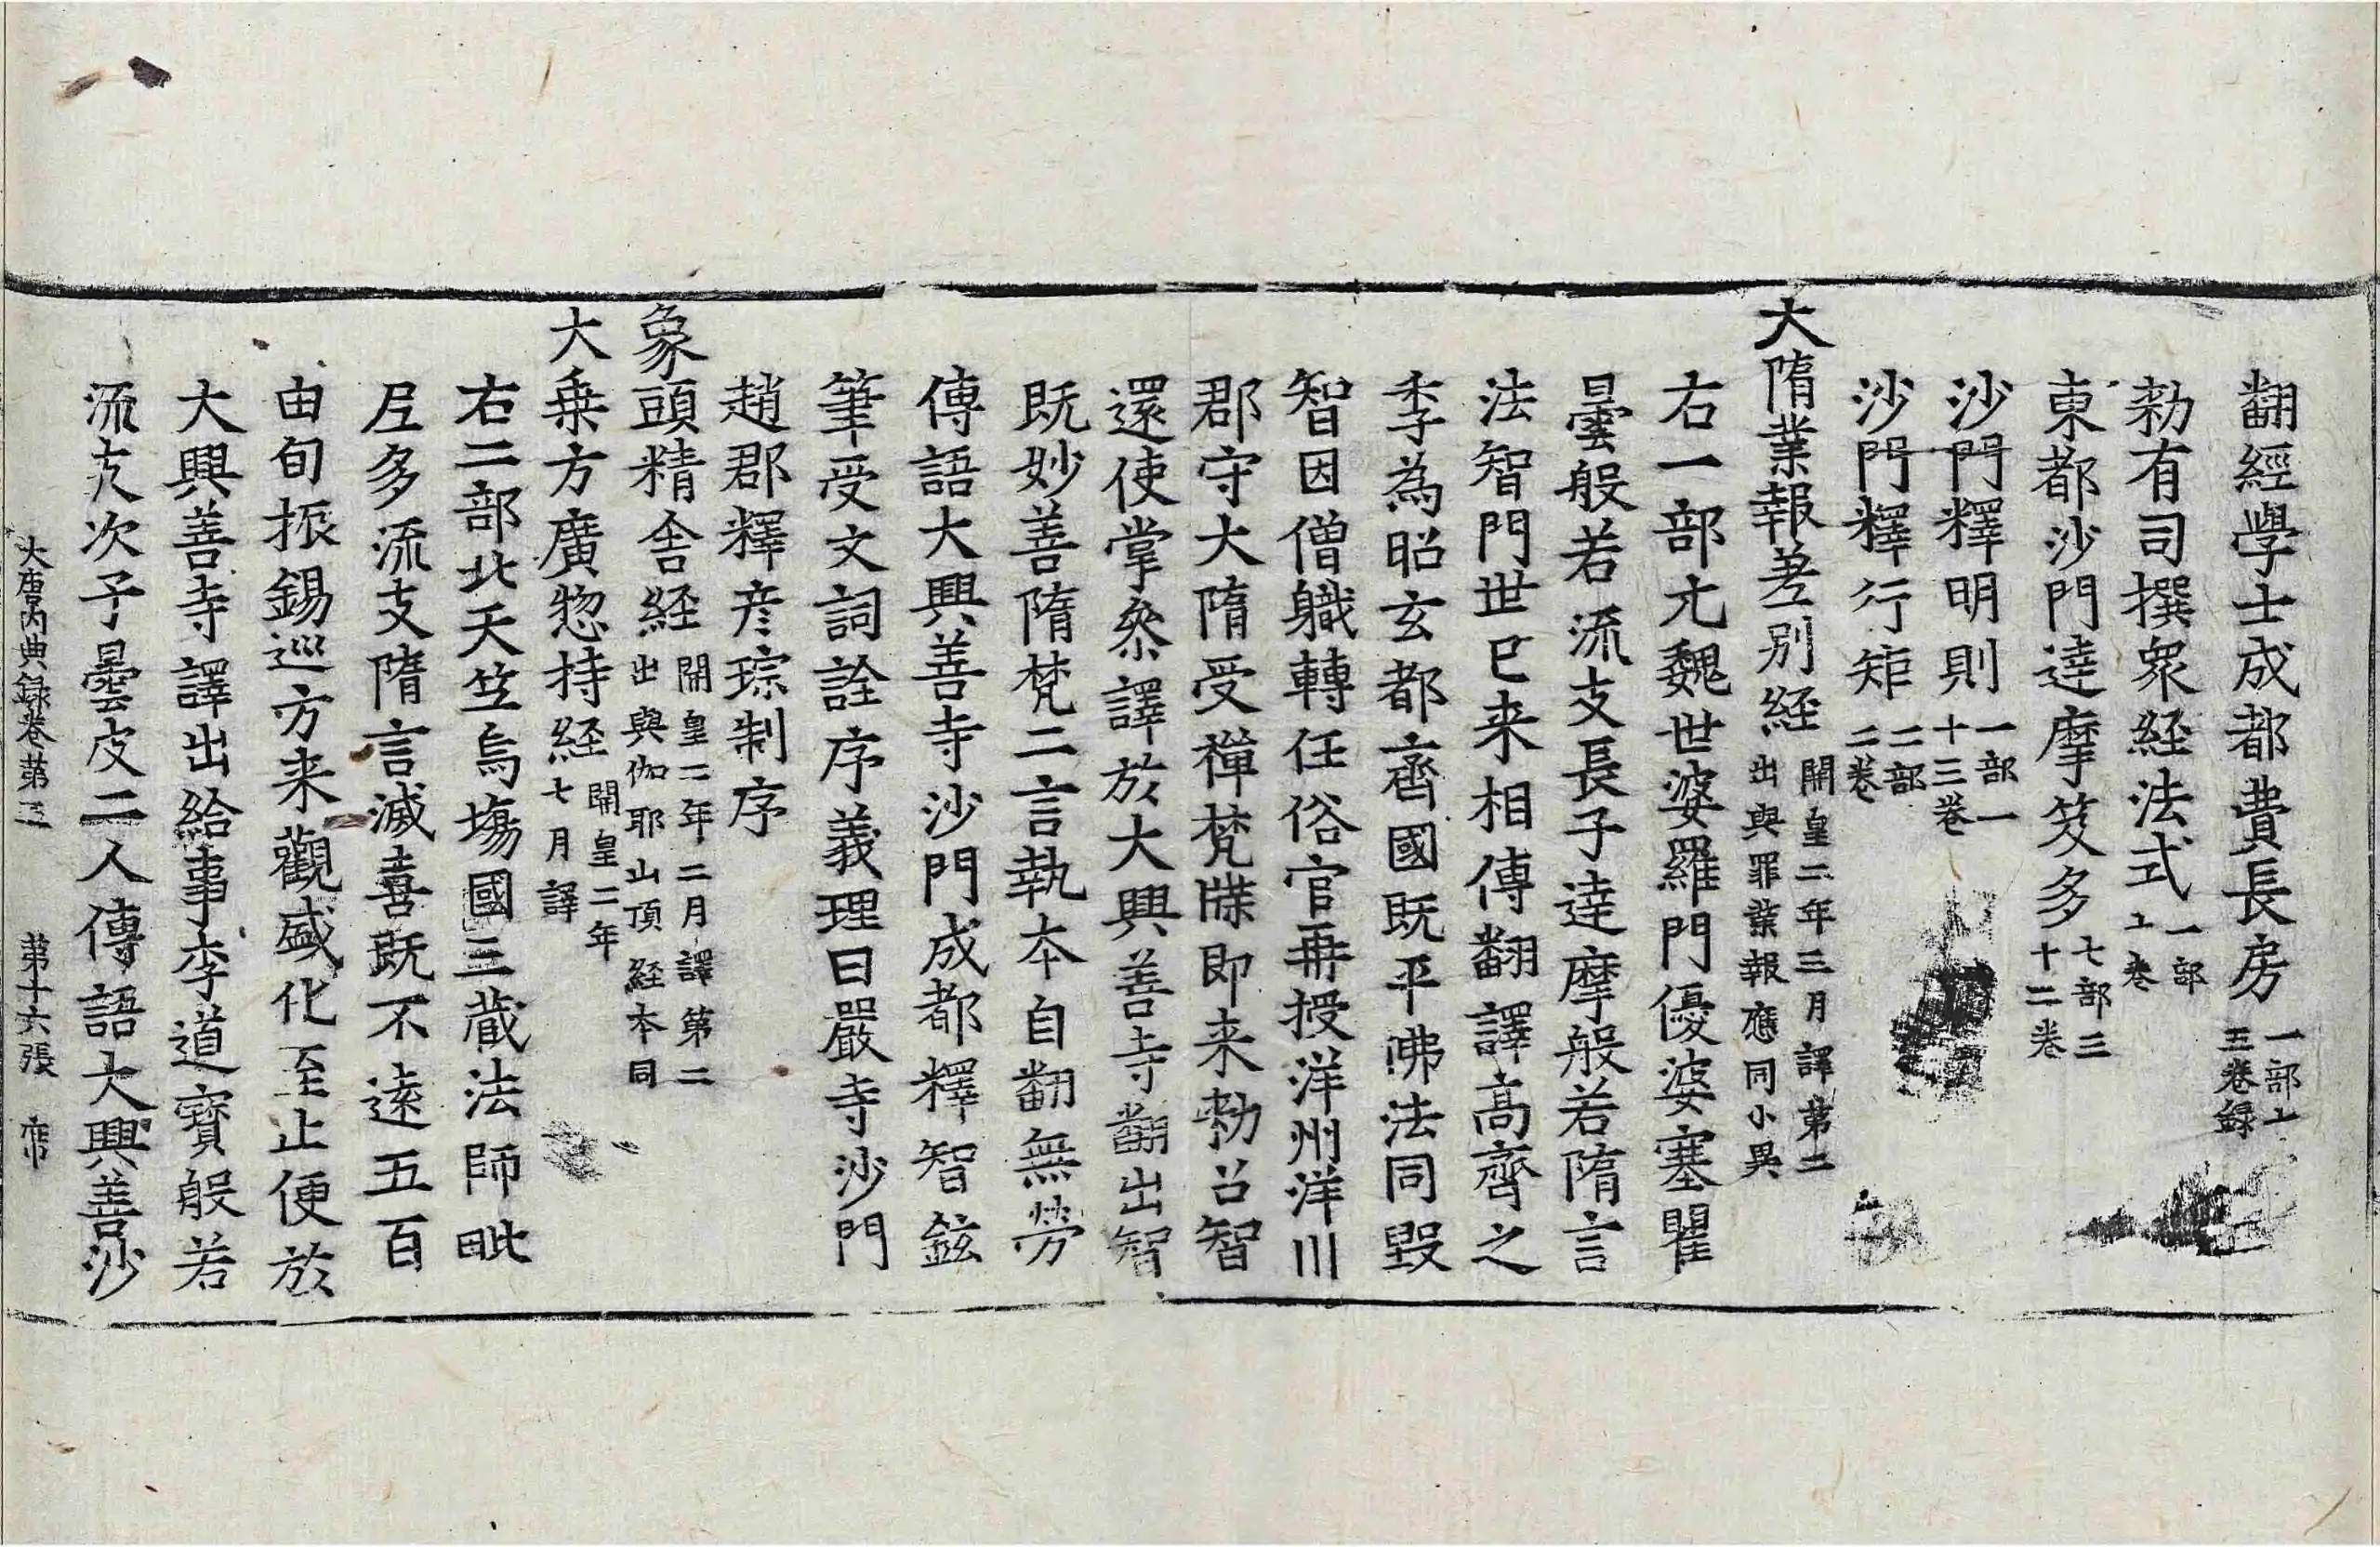 翻經學士成都費長房一部十五卷録
勑有司撰衆経法式一部十卷
東都沙門達摩笈多七部三十二卷
沙門釋明則一部一十三卷
沙門釋行矩二部二卷
大隋業報差別経開皇二年三月譯第二出與罪業報應同小異
右一部元魏世婆羅門優婆塞瞿
曇般若流支長子達摩般若隋言
法智門世已来相傳翻譯高齊之
季為昭玄都齊國既平佛法同毀
智因僧軄轉任俗官再授洋州洋川
郡守大隋受禪梵牒即来勑召智
還使掌叅譯於大興善寺翻出智
既妙善隋梵二言執本自翻無勞
傳語大興善寺沙門成都釋智鉉
筆受文詞詮序義理曰嚴寺沙門
趙郡釋彦琮制序
象頭精舎経開皇二年二月譯第二出與伽耶山頂経本同
大乗方廣惣持経開皇二年七月譯
右二部北天笠烏塲國三蔵法師毗
尼多流支隋言滅喜既不遠五百
由旬振錫巡方来觀盛化至止便於
大興善寺譯出給事李道寶般若
流支次子曇皮二人傳語大興善沙
大唐内典録卷第五 第十六張